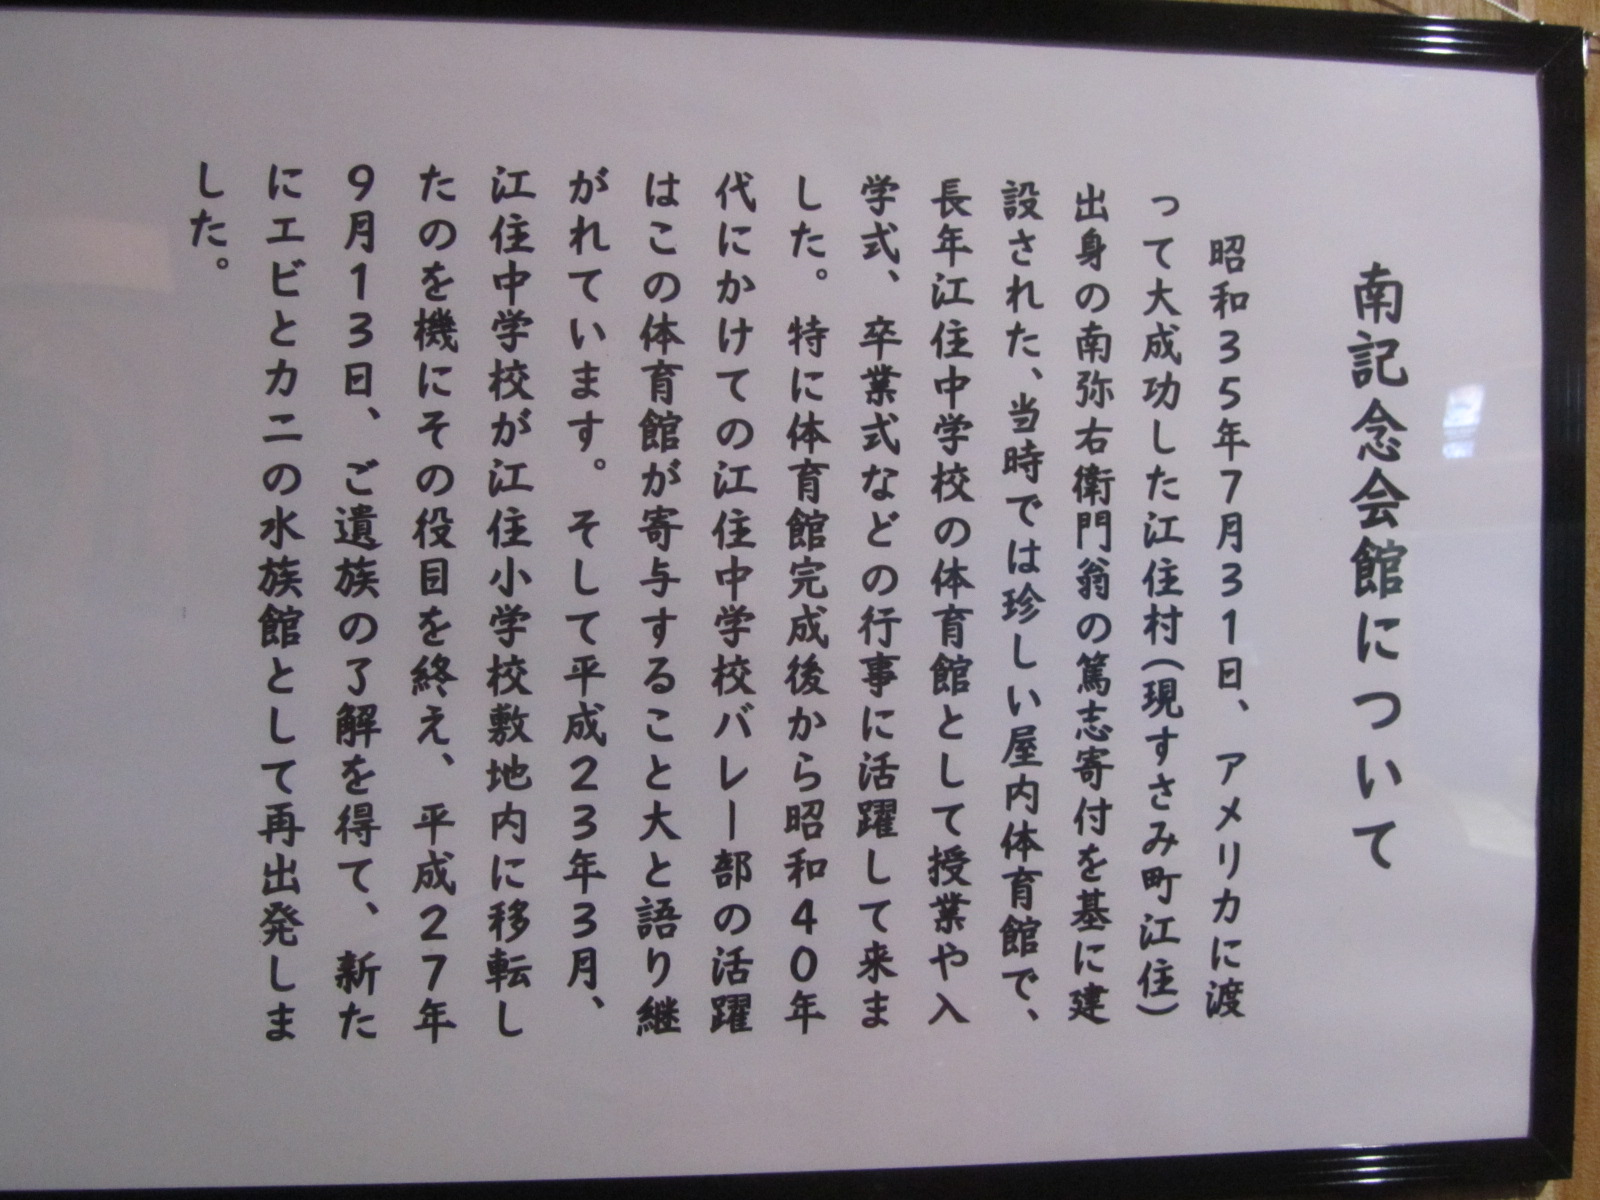 南記念会館について
昭和35年7月31日、アメリカに渡
って大成功した江住村(現すさみ町江住)
出身の南弥右衛門翁の篤志寄付を基に建
設された、当時では珍しい屋内体育館で、
長年江住中学校の体育館として授業や入
学式、卒業式などの行事に活躍して来ま
した。特に体育館完成後から昭和40年
代にかけての江住中学校バレー部の活躍
はこの体育館が寄与すること大と語り継
がれています。そして平成23年3月、
江住中学校が江住小学校敷地内に移転し
たのを機にその役目を終え、平成27年
9月13日、ご遺族の了解を得て、新た
にエビとカニの水族館として再出発しま
した。